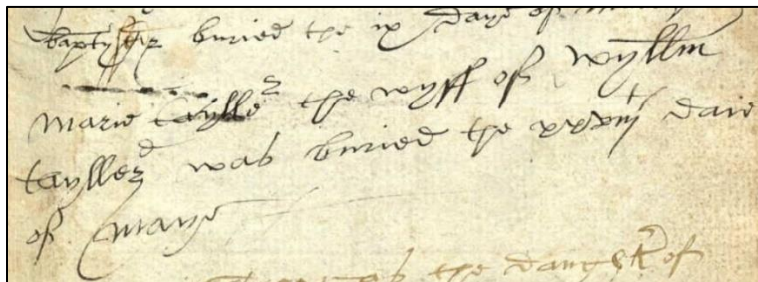 buried the ix daye of
Marie taylle the wyff of wyllm
taylle was buried the daie
of maye
was the daughter of